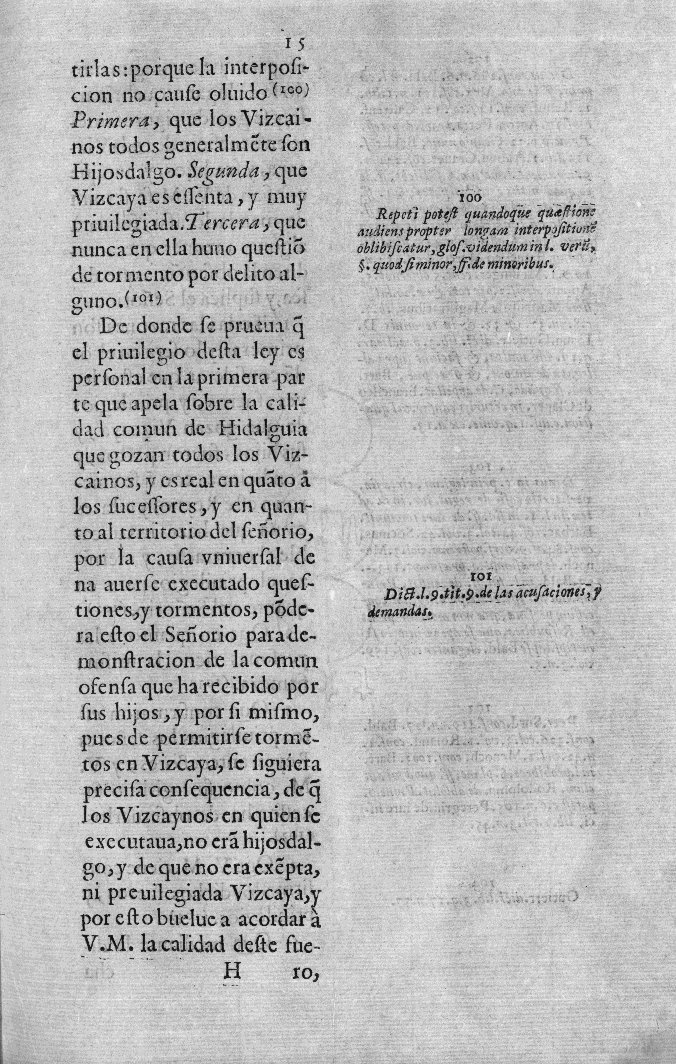 15
tirlas: porque la interposi-
cion no cause oluido (100)
Primera, que los Vizcai-
nos todos generalmẽte son
Hijosdalgo. Segunda, que
Vizcaya es essenta, y muy
priuilegiada. Tercera, que
nunca en ella huuo questiõ
de tormento por delito al-
guno. (101)
De donde se prueua q̃
el priuilegio desta ley es
personal en la primera par
te que apela sobre la cali-
dad comun de Hidalguia
que gozan todos los Viz-
cainos, y es real en quãto à
los sucessores, y en quan-
to al territorio del señorio,
por la causa vniuersal de
na auerse executado ques-
tiones, y tormentos, põde-
ra esto el Señorio para de-
monstracion de la comun
ofensa que ha recibido por
sus hijos, y por si mismo,
pues de permitirse tormẽ-
tos en Vizcaya, se siguiera
precisa consequencia, de q̃
los Vizcaynos en quien se
executaua, no erã hijosdal-
go, y de que no era exẽpta,
ni preuilegiada Vizcaya, y
por esto buelue a acordar à
V.M. la calidad deste fue-
H 10,
100
Repeti potest quandoque quæstione
audiens propter longam interpositionē
oblibiscatur, glos. videndum in l. verū,
§. quod si minor, ff. de minoribus.
101
Dict. l. 9. tit. 9. de las acusaciones, y
demandas.